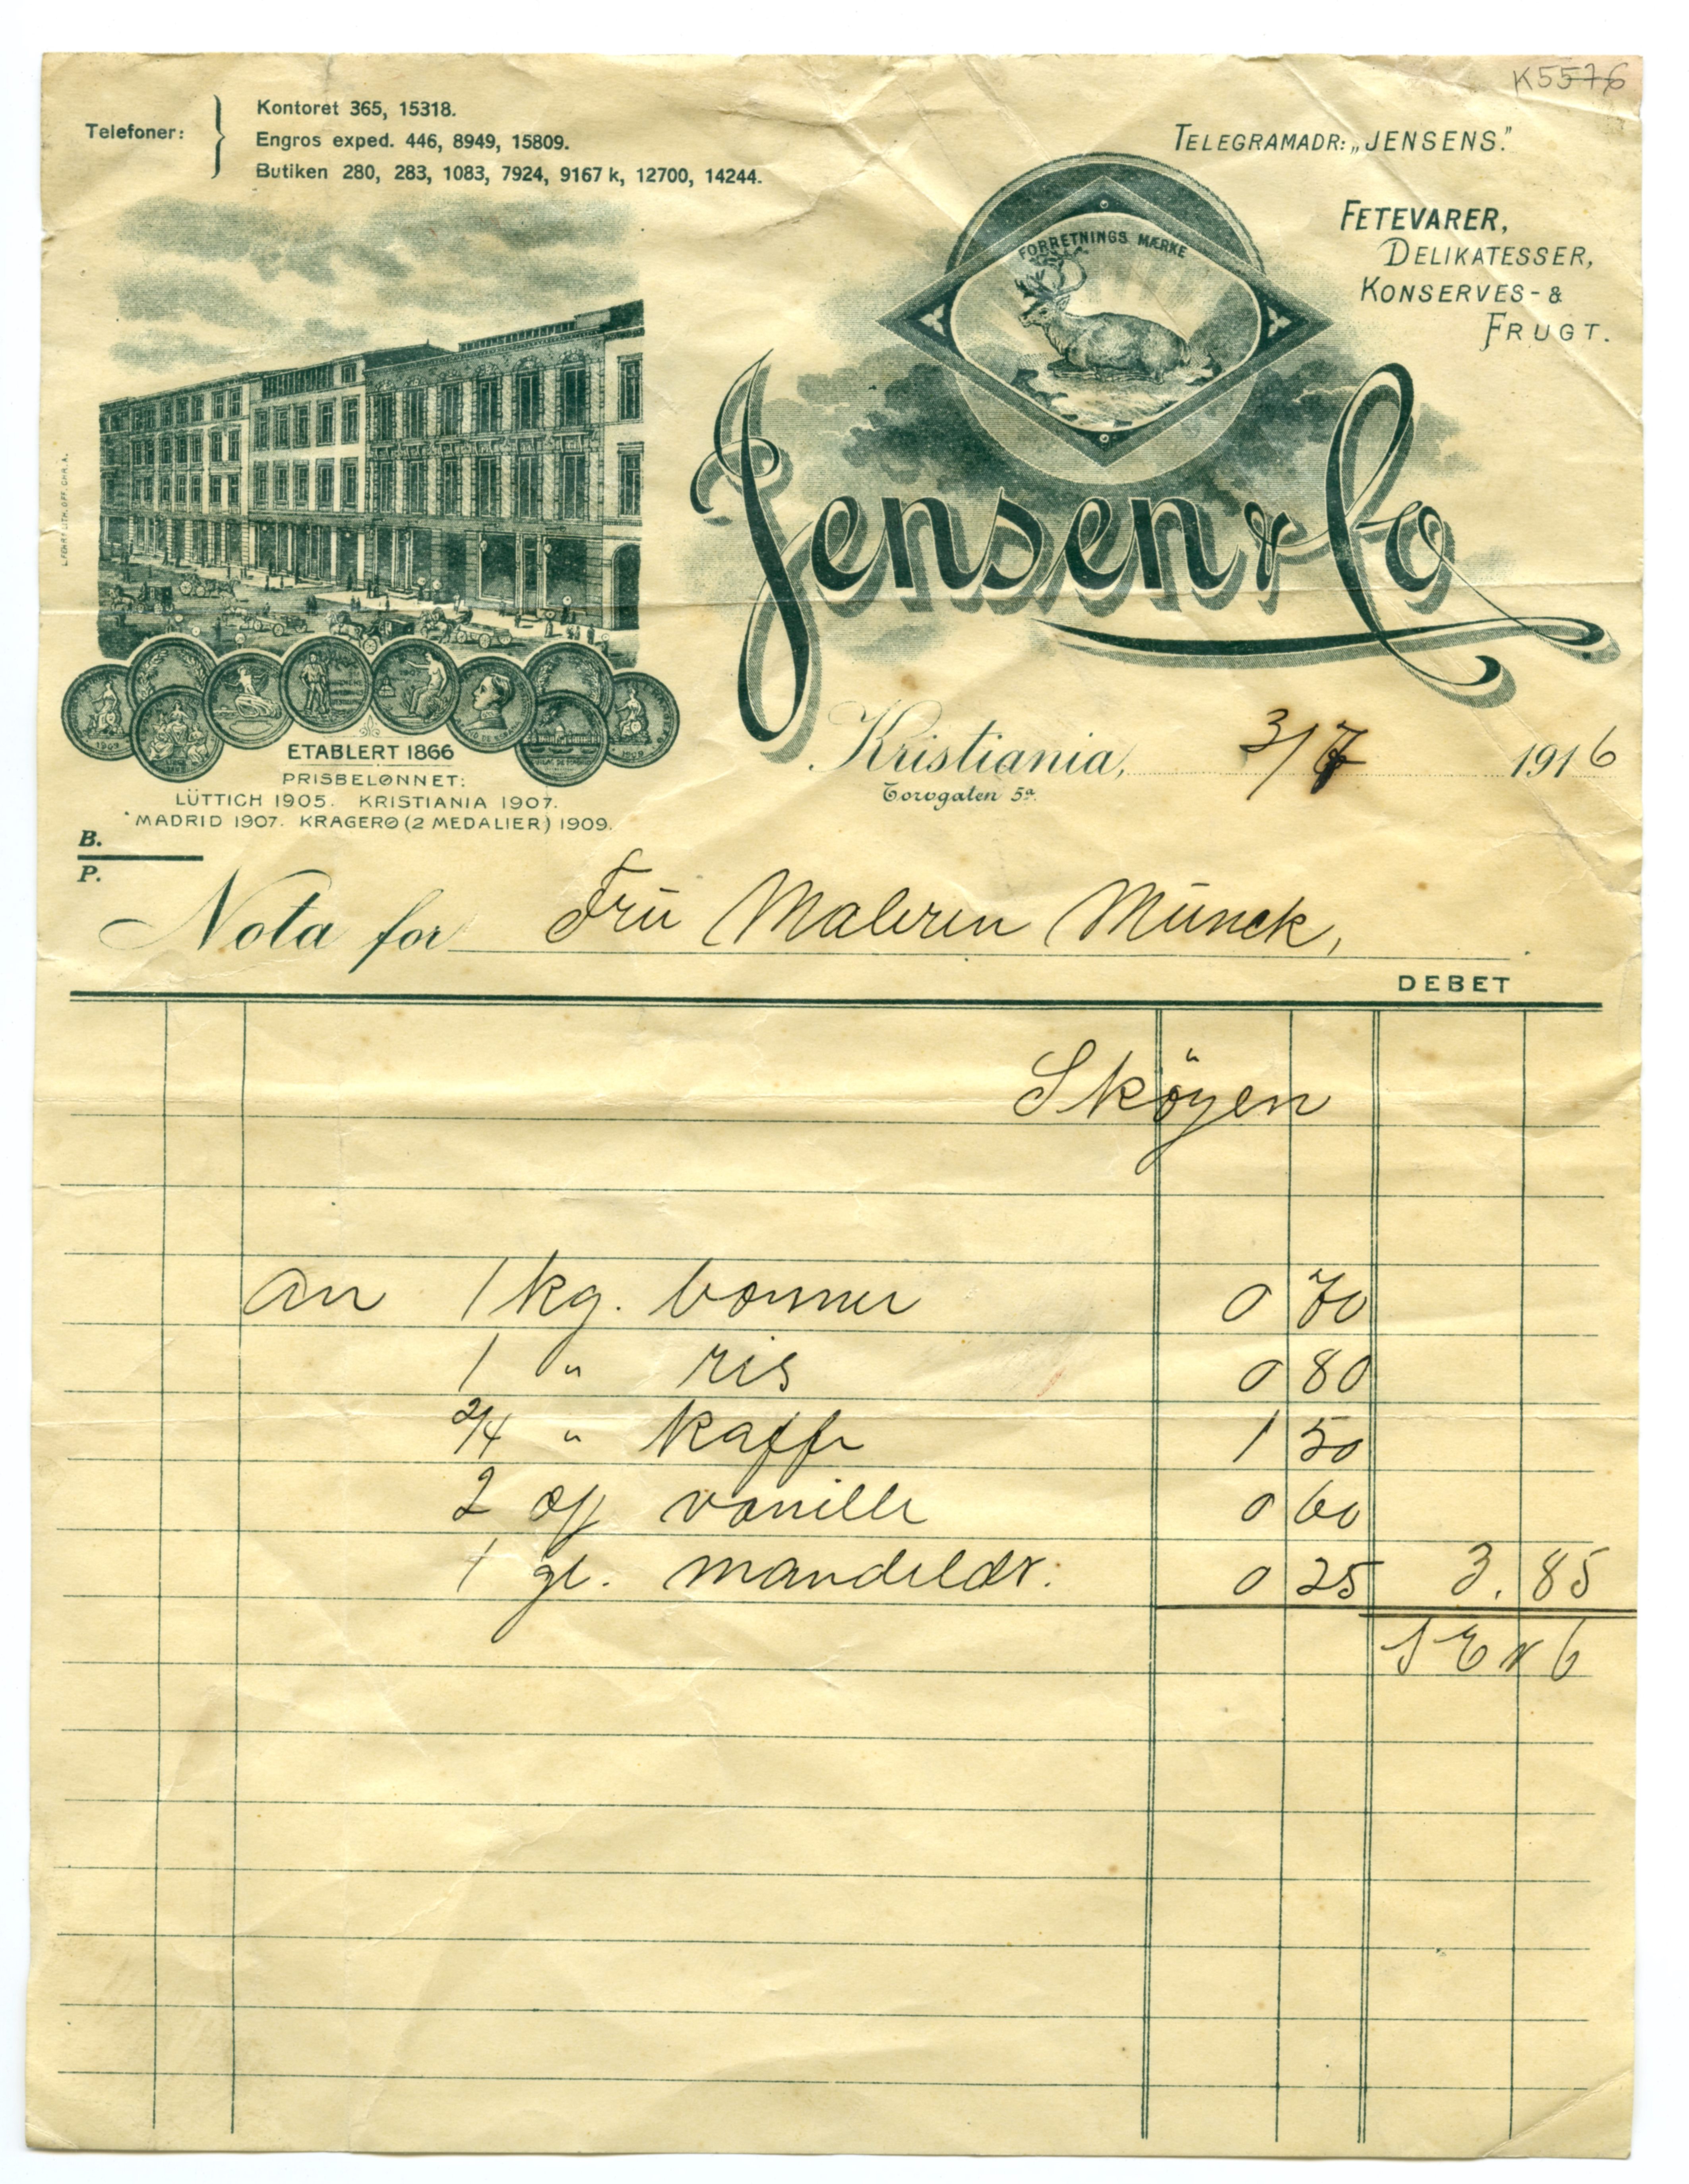 K5576
Telefoner:
Kontoret 365, 15318.
Engros exped. 446, 8949, 15809.
Butiken 280, 283, 1083, 7924, 9167 k, 12700, 14244.
TELEGRAMADR: „JENSENS."
FETEVARER,
DELIKATESSER,
KONSERVES- &
FRUGT.
FORRETNINGS MÆRKE
Jensen & Co
ETABLERT 1866
PRISBELØNNET:
LÜTTICH 1905. KRISTIANIA 1907.
MADRID 1907. KRAGERØ (2 MEDALIER) 1909.
Kristiania, 3/7 1916
Torvgaten 5a.
B.
P.
Nota for Fru Maleren Munck,
DEBET
Sköyen
an 1 kg. bönner 0 70
1 " ris 0 80
2/4 " kaffe 1 50
2 vanille 0 60
1 gl. mandeldr. 0 25 3.85